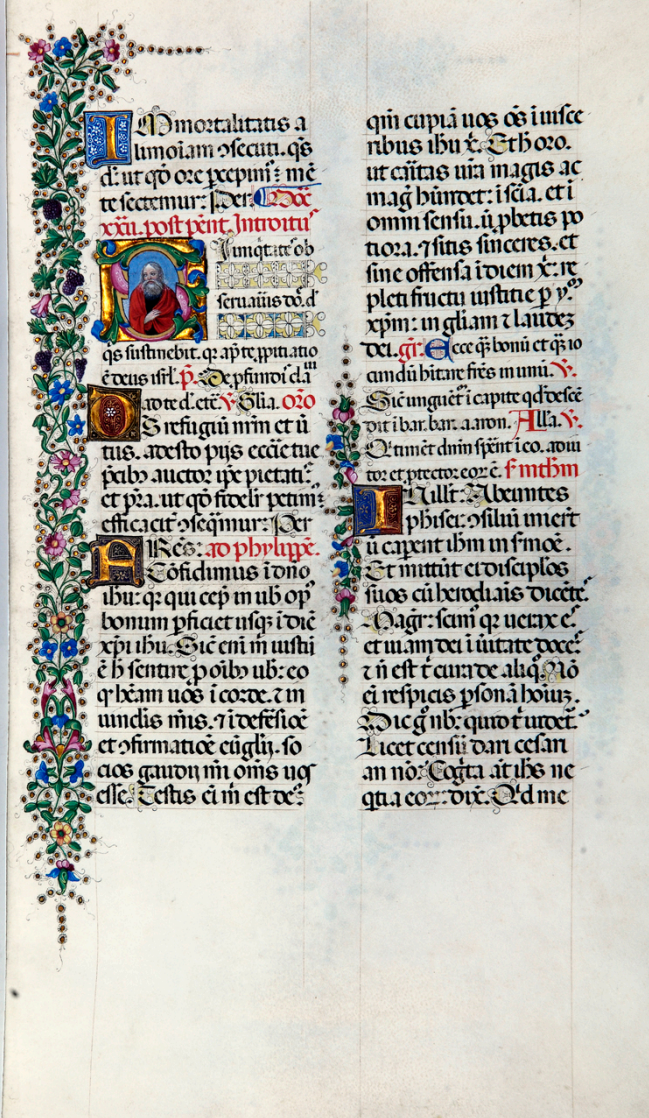 IMmortalitatis a
limoīam ꝯsecuti. q̄s
d̄: ut qd̄ ore p̄cepim⁹: mē
te sectemur: Per: Doīc̄
xxii. post pent. Introitus
SI iniq̄tates ob
seruaūis dō. d̄
q̄s sustinebit. qr ap̄ te p̄pitiatio
ē deus isrl̄. p̄. De p̄fundis cla
ad te d̄. etc̄ V̄ Gl̄ia. oro
DS refugiū nr̄m et ū
tus. adesto pijs eccl̄ie tue
p̄cib⁹ auctor ip̄e pietatis
et p̄ra. ut qd̄ fidelr̄ petim⁹
efficacit̄ ꝯseq̄mur: Per
FRēs: ad phylippē.
Cōfidimus ī dn̄o
ihū: qr qui cep̄ in ub̄ op⁹
bonum p̄ficiet usq̄ ī diē
xp̄i ihū. Sic̄ eni m̄ iustū
ē h̄ sentire p̄ oīb⁹ ub̄: eo
q̄ h̄eam uos ī corde. ⁊ in
uinclis m̄is. ⁊ ī defēsiōe
et ꝯfirmatiōe eūglij. so
cios gaudij m̄i om̄s uos
esse. Testis ei m̄ est de⁹:
qm̄ cupiā uos oēs ī uisce
ribus ihū x̄. Et h̄ oro.
ut cāritas ur̄a magis ac
mag̃ hūndet: ī scīa. et ī
omni sensu. ū p̄betis po
tiora. ⁊ sitis sinceres. et
sine offensa ī diem x̄: re
pleti fructu iustitie p̄ y.
xp̄m: in gl̄iam ⁊ laudez
dei. gr̄. Ecce q̄ bonū et q̄ io
cundū h̄itare frēs in unū. V̄.
Sic̄ unguēt̄ ī capite qd̄ descē
dit ī bar. bar. aaron. All̄a. V̄.
Q̄ timēt dn̄m sp̄ent ī eo. adiu
tor et p̄tector eor̄ ē. s̄ mth̄m
IN illo t̄: Abeuntes
phisei: ꝯsiliū inier̄t
ū cap̄ent ih̄m in s̄moē.
Et mittūt ei disciplos
suos cū herodiais dicētes
Magr̄: scim⁹ qr uerax es
et uiam dei ī ūitate doces
⁊ n̄ est t̄ cura de aliq̄. Nō
ei respicis p̄sonā hoīuz.
Dic g̊ nb̄: quid t̄ uidet̄
Licet censū dari cesari
an nō: Cog̃ta at ih̄s ne
qtia eor̄: dix̄. Q̄d me